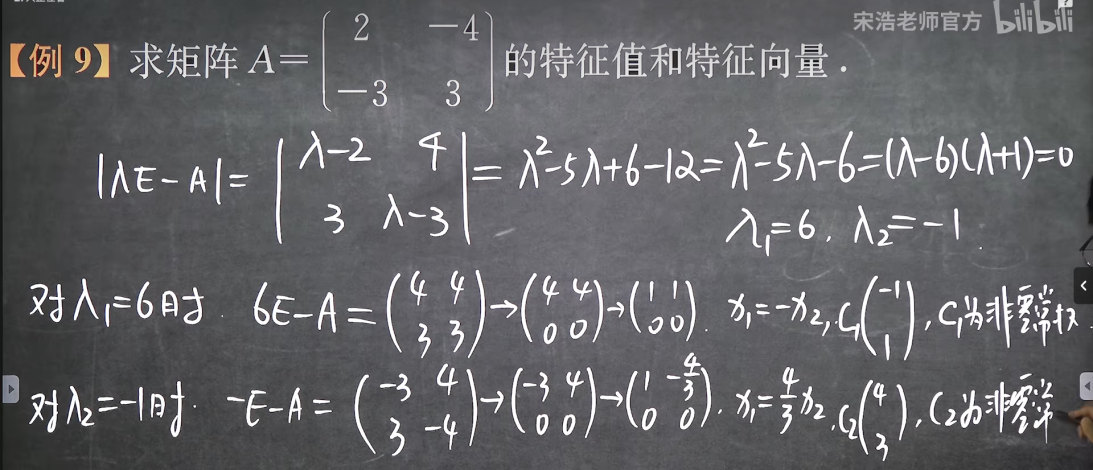 宋浩老师官方 bilibili
【例 9】求矩阵 A = (2 -4; -3 3) 的特征值和特征向量.
|λE-A| = |λ-2 4; 3 λ-3| = λ²-5λ+6-12 = λ²-5λ-6 = (λ-6)(λ+1) = 0
λ₁=6, λ₂=-1.
对λ₁=6时. 6E-A = (4 4; 3 3) → (4 4; 0 0) → (1 1; 0 0). x₁=-x₂, C₁(-1; 1), C₁为非零常数
对λ₂=-1时. -E-A = (-3 4; 3 -4) → (-3 4; 0 0) → (1 -4/3; 0 0). x₁=4/3 x₂, C₂(4; 3), C₂为非零常